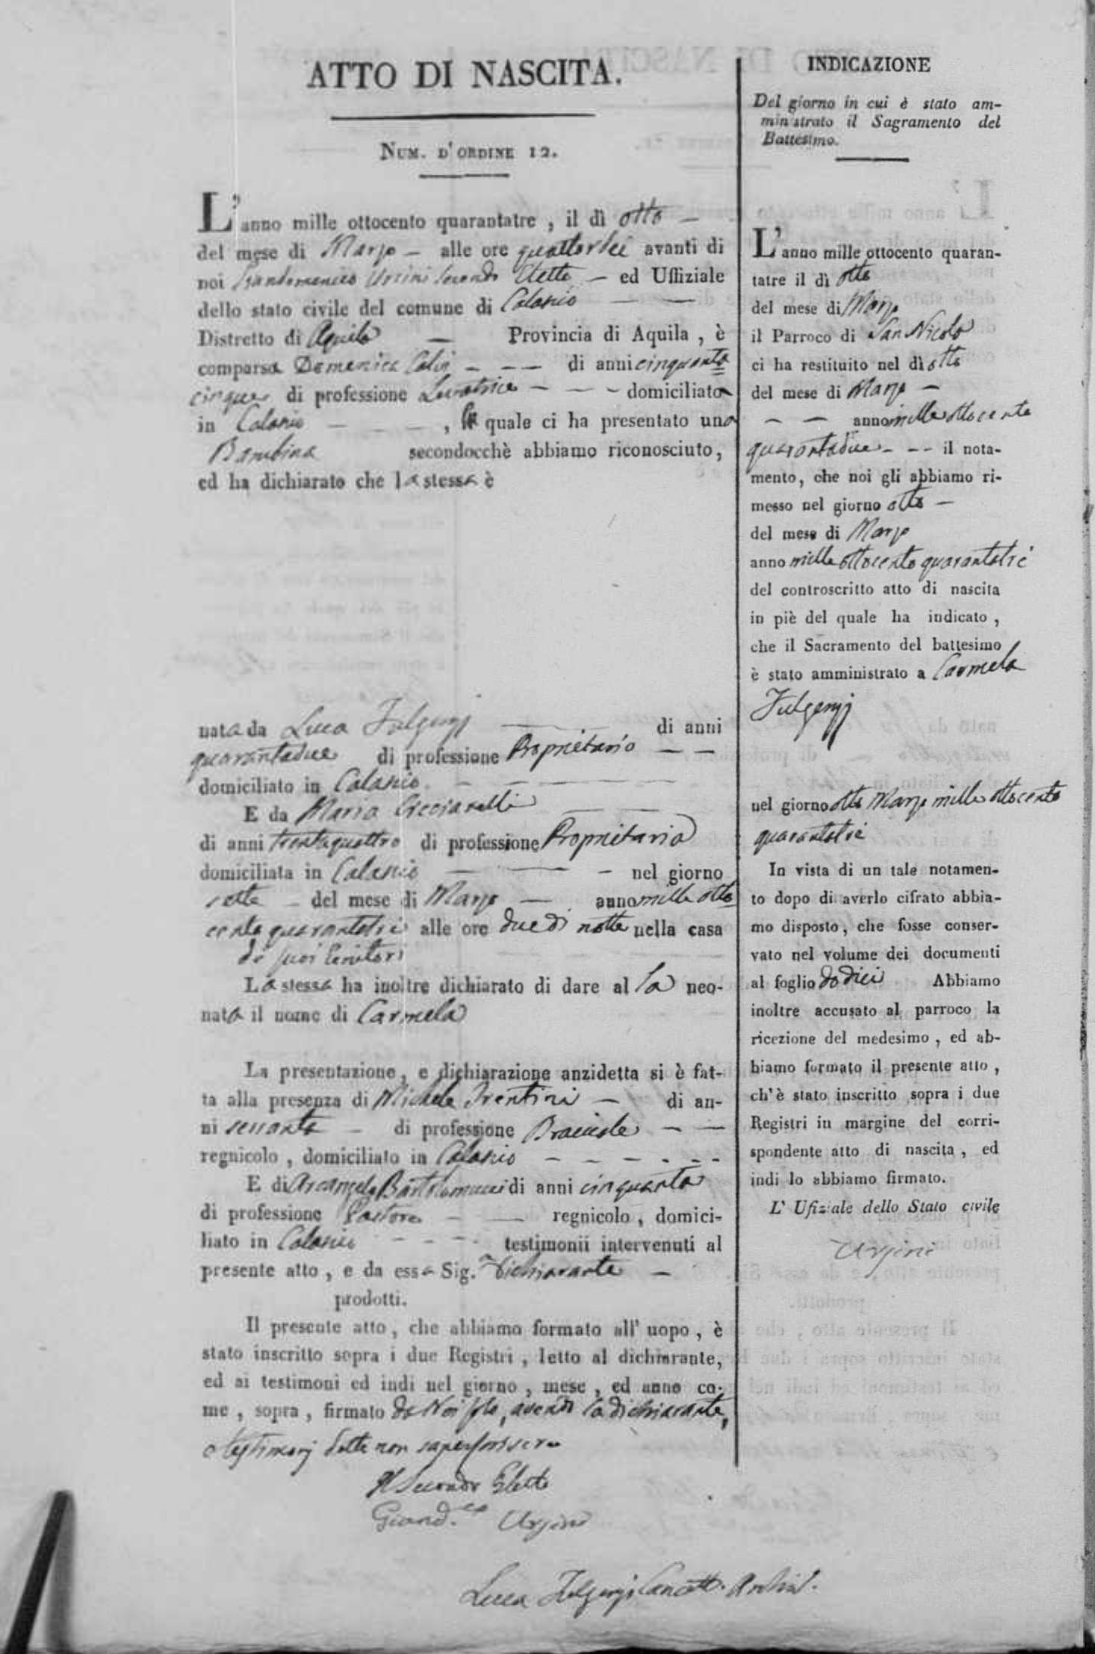 ATTO DI NASCITA.
NUM. D'ORDINE 12.
L'anno mille ottocento quarantatre, il dì otto —
del mese di Marzo — alle ore quattordici avanti di
noi Giandomenico Ursini Secondo Eletto — ed Uffiziale
dello stato civile del comune di Calascio — —
Distretto di Aquila — Provincia di Aquila, è
comparsa Domenica — — — di anni cinquanta
cinque di professione Levatrice — — — domiciliata
in Calascio — — — , la quale ci ha presentato una
Bambina secondocchè abbiamo riconosciuto,
ed ha dichiarato che la stessa è
nata da Luca Fulgenzj — di anni
quarantadue di professione Proprietario — —
domiciliato in Calascio — —
E da Maria Ciccarelli —
di anni trentaquattro di professione Proprietaria
domiciliata in Calascio — — — nel giorno
sette — del mese di Marzo — anno mille otto
cento quarantatrè alle ore due di notte nella casa
di suoi Genitori
La stessa ha inoltre dichiarato di dare al la neo-
nata il nome di Carmela
La presentazione, e dichiarazione anzidetta si è fat-
ta alla presenza di Michele Trentini — di an-
ni sessanta — di professione Bracciale — —
regnicolo, domiciliato in Calascio — — — — —
E di Arcangelo Bartolomucci di anni cinquanta
di professione Pastore — — regnicolo, domici-
liato in Calascio — — — testimonii intervenuti al
presente atto, e da essa Sig.a Dichiarante —
prodotti.
Il presente atto, che abbiamo formato all' uopo, è
stato inscritto sopra i due Registri, letto al dichiarante,
ed ai testimoni ed indi nel giorno, mese, ed anno co-
me, sopra, firmato da Noi solo, avendo la dichiarante,
e testimonj detto non saper scrivere
Il Secondo Eletto
Giand.co Ursini
Luca Fulgenzj Cancell. Archiv.
INDICAZIONE
Del giorno in cui è stato am-
ministrato il Sagramento del
Battesimo.
L'anno mille ottocento quaran-
tatre il dì otto
del mese di Marzo
il Parroco di San Nicola
ci ha restituito nel dì otto
del mese di Marzo —
— — anno mille ottocento
quarantadue — — il nota-
mento, che noi gli abbiamo ri-
messo nel giorno otto —
del mese di Marzo
anno mille ottocento quarantatrè
del controscritto atto di nascita
in piè del quale ha indicato,
che il Sacramento del battesimo
è stato amministrato a Carmela
Fulgenzj
nel giorno otto Marzo mille ottocento
quarantatrè
In vista di un tale notamen-
to dopo di averlo cifrato abbia-
mo disposto, che fosse conser-
vato nel volume dei documenti
al foglio dodici Abbiamo
inoltre accusato al parroco la
ricezione del medesimo, ed ab-
biamo formato il presente atto,
ch'è stato inscritto sopra i due
Registri in margine del corri-
spondente atto di nascita, ed
indi lo abbiamo firmato.
L' Ufiziale dello Stato civile
Ursini